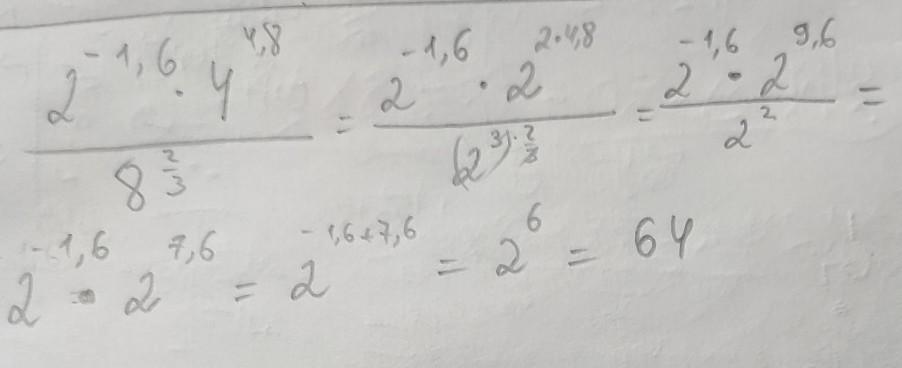 (2^{-1,6} · 4^{4,8}) / 8^{2/3} = (2^{-1,6} · 2^{2·4,8}) / (2^{3)·2/3} = (2^{-1,6} · 2^{9,6}) / 2^{2} =
2^{-1,6} · 2^{7,6} = 2^{-1,6+7,6} = 2^{6} = 64